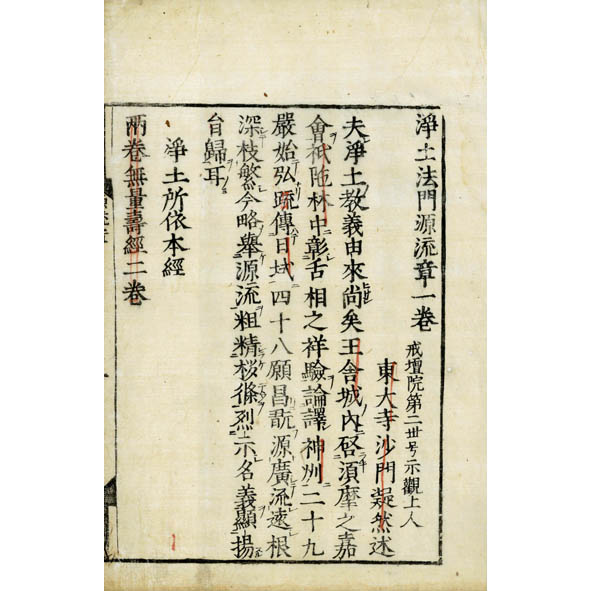 淨土法門源流章一卷
戒壇院第二丗号示觀上人
東大寺沙門凝然述
夫淨土教義由來尚矣王舍城內啓須摩之嘉
會祇陁林中彰舌相之祥驗論譯神州二十九
嚴始弘䟽傳日域四十八願昌翫源廣流遠根
深枝繁今略舉源流粗精核條烈示名義顯揚
自歸耳
淨土所依本經
兩卷無量壽經二卷